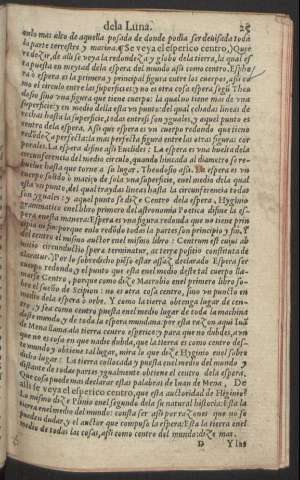 dela Luna. 25
onlo mas alto de aquella posada de donde podia ser deuisada toda
la parte terrestre y marina. ¶ Se veya el esperico centro.) Que
re dezir, de alli se veya la redondez y globo dela tierra, la qual es
ta puesta en meytad dela espera del mundo assi como centro. Esphe
ra o espera es la primera y principal figura entre los cuerpos, assi co
mo el circulo entre las superficies: y no es otra cosa espera segũ Theo
dosio sino vna figura que tiene cuerpo: la qual no tiene mas de vna
redeziz, y en medio della esta vn punto: del qual echadas lineas de
rechas hasta la superficie, todas entre si son yguales, y aquel punto es
centro dela espera. Assi que espera es vn cuerpo redondo que tiene
redõdeza perfecta: la mas perfecta figura entre las otras figuras cor
porales. La espera difine assi Euclides: La espera es vna buelta dela
circunferencia del medio circulo, quando hincada al diametro se re
buelue hasta que torna a su lugar. Theodosio assi. La espera es vn
cuerpo solido o maciço de sola vna superficie, en el medio dela qual
esta vn punto, del qual traydas lineas hasta la circunferencia todas
son yguales: y aquel punto se dize Centro dela espera, Hyginio
grammatico enel libro primero del astronomia Poetica difine la es
pera enesta manera: Espera es vna figura redonda que no tiene prin
cipio ni fin: porque enlo redõdo todas las partes son principio y fin.
del centro el mismo auctor enel mismo libro: Centrum est cuius ab
initio circunductio spera terminatur, ac terre positio constituta de
claratur.) Por lo sobredicho piẽso estar assaz declarado Espera ser
cuerpo redondo, y el punto que esta enel medio deste tal cuerpo lla-
marse Centro, porque como dize Macrobio enel primero libro so-
bre el sueño de Scipion: no es otra cosa centro, sino vn punto en
medio dela espera o orbe. Y como la tierra obtenga lugar de cen-
tro, y sea como centro puesta enel medio lugar de toda la machina
deste mundo, y de toda la espera mundana: por esta razon aqui Iuã
de Mena llama ala tierra centro esperico: y para que no dubdes, avn
que no es cosa en que nadie dubda, que la tierra es como centro des-
te mundo y obtiene tal lugar, mira lo que dize Hyginio enel sobre
dicho lugar. La tierra collocada y puesta enel medio del mundo y
distante de todas partes ygualmente obtiene el centro dela espera.
Que cosa puede mas declarar estas palabras de Iuan de Mena, De
alli se veya el esperico centro, que esta auctoridad de Higinio?
Lo mismo dize Plinio enel segundo dela su natural historia: Esta la
tierra enel medio del mundo: consta ser assi por razones que no se
pueden dudar, y el auctor que compuso la espera: Esta la tierra enel
medio de todas las cosas, assi como centro del mundo: dize mas.
D Y las